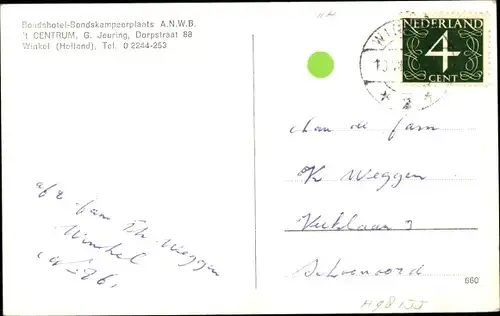 Bondshotel-Bondskampeerplaats A.N.W.B.
't CENTRUM, G. Jeuring, Dorpstraat 88
Winkel (Holland), Tel. 0 2244-253
NEDERLAND
4
CENT
WIN
aan de fam
K Weggen
Schoonoord
660
afz. fam Th. Weggen
Winkel